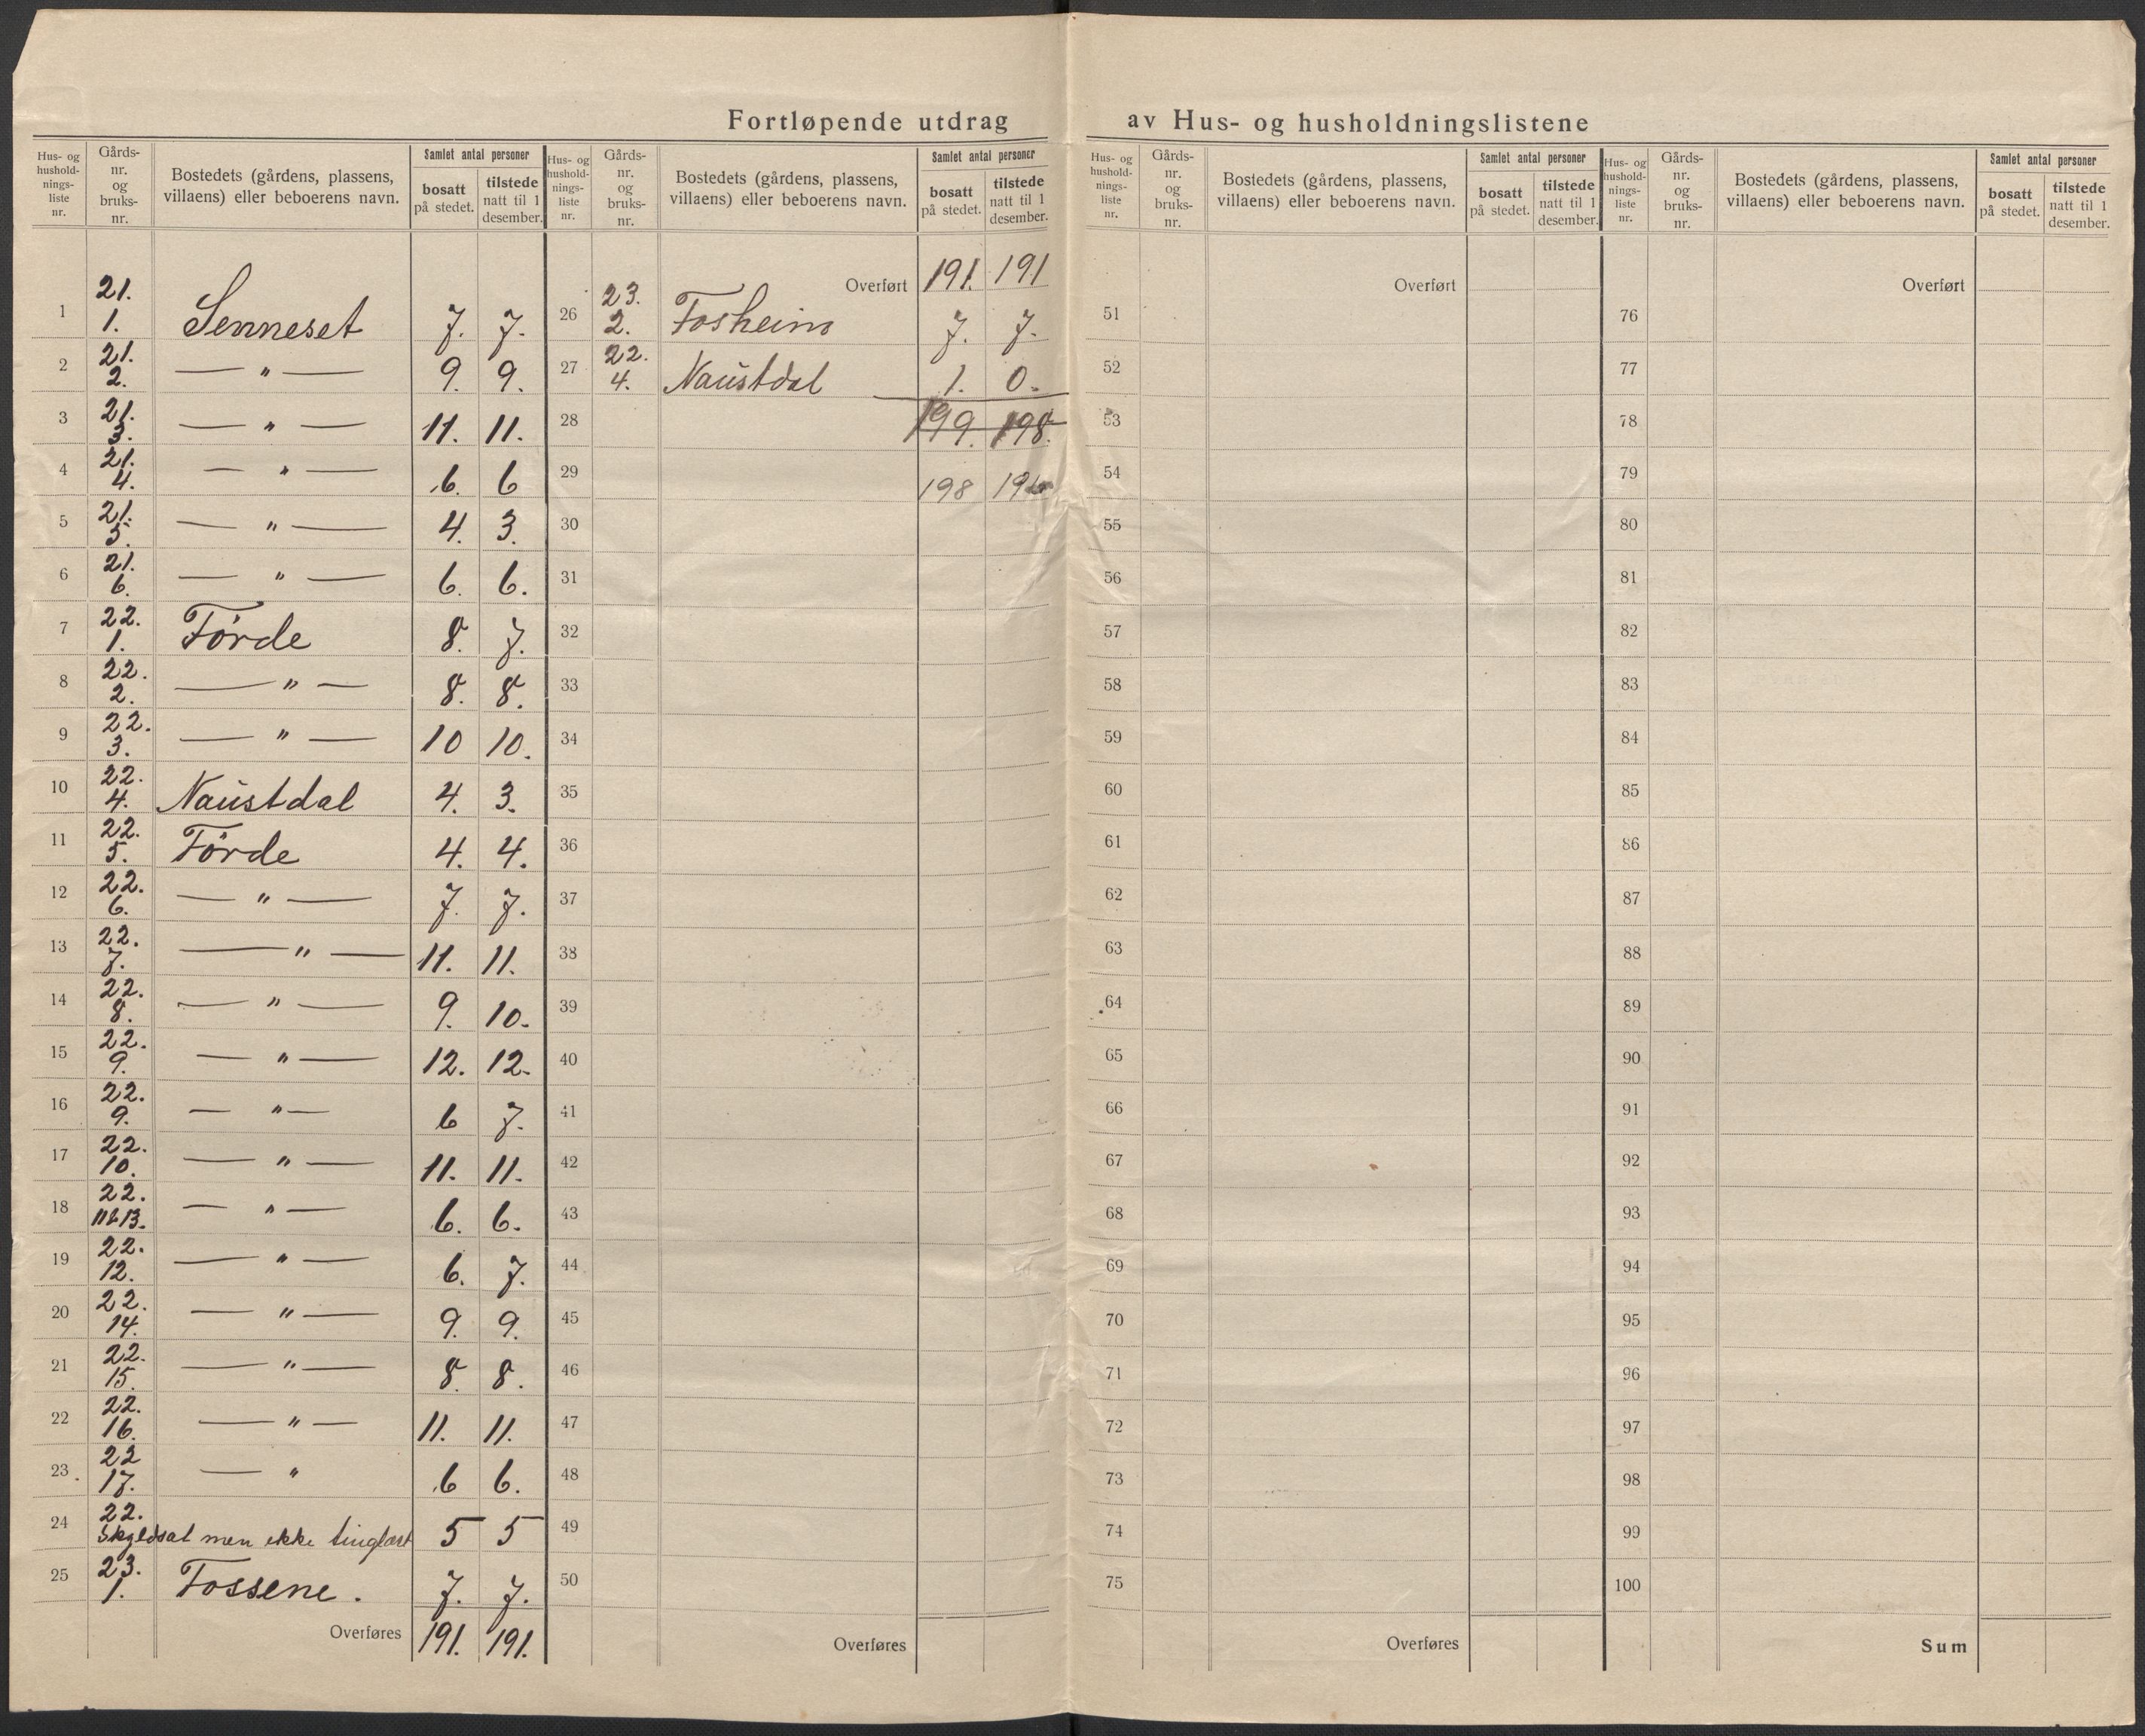 Fortløpende utdrag av Hus- og husholdningslistene
Hus- og husholdnings- liste nr. | Gårds- nr. og bruks- nr. | Bostedets (gårdens, plassens, villaens) eller beboerens navn. | Samlet antal personer | bosatt på stedet. | tilstede natt til 1 desember.
1 21. 1. Senneset 7. 7.
2 21. 2. — " — 9. 9.
3 21. 3. — " — 11. 11.
4 21. 4. — " — 6. 6
5 21. 5. — " — 4. 3.
6 21. 6. — " — 6. 6.
7 22. 1. Förde 8. 7.
8 22. 2. — " — 8. 8.
9 22. 3. — " — 10 10.
10 22. 4. Naustdal 4. 3.
11 22. 5. Förde 4. 4.
12 22. 6. — " — 7. 7.
13 22. 7. — " — 11. 11.
14 22. 8. — " — 9. 10.
15 22. 9. — " — 12. 12.
16 22. 9. — " — 6 7.
17 22. 10. — " — 11. 11.
18 22. 11&13. — " — 6. 6.
19 22. 12. — " — 6. 7.
20 22. 14. — " — 9. 9.
21 22. 15. — " — 8. 8.
22 22. 16. — " — 11. 11.
23 22 17. — " 6 6.
24 22. Skyldsat men ikke tinglæst 5 5
25 23. 1. Fossene. 7. 7.
Overføres 191. 191.
Hus- og husholdnings- liste nr. | Gårds- nr. og bruks- nr. | Bostedets (gårdens, plassens, villaens) eller beboerens navn. | Samlet antal personer | bosatt på stedet. | tilstede natt til 1 desember.
Overført 191. 191
26 23. 2. Fosheim 7. 7.
27 22. 4. Naustdal 1. 0.
28 199. 198.
29 198
30
31
32
33
34
35
36
37
38
39
40
41
42
43
44
45
46
47
48
49
50
Overføres
Hus- og husholdnings- liste nr. | Gårds- nr. og bruks- nr. | Bostedets (gårdens, plassens, villaens) eller beboerens navn. | Samlet antal personer | bosatt på stedet. | tilstede natt til 1 desember.
Overført
51
52
53
54
55
56
57
58
59
60
61
62
63
64
65
66
67
68
69
70
71
72
73
74
75
Overføres
Hus- og husholdnings- liste nr. | Gårds- nr. og bruks- nr. | Bostedets (gårdens, plassens, villaens) eller beboerens navn. | Samlet antal personer | bosatt på stedet. | tilstede natt til 1 desember.
Overført
76
77
78
79
80
81
82
83
84
85
86
87
88
89
90
91
92
93
94
95
96
97
98
99
100
Sum